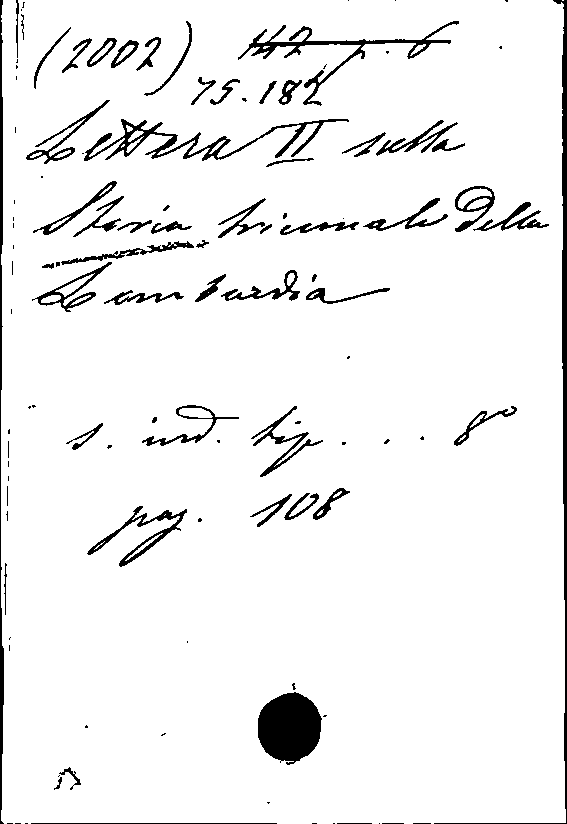 (2002) 142 p. 6
75.182
Lettera II sulla
Storia triennale della
Lombardia
s. ind. tip. . . 8°
pag. 108